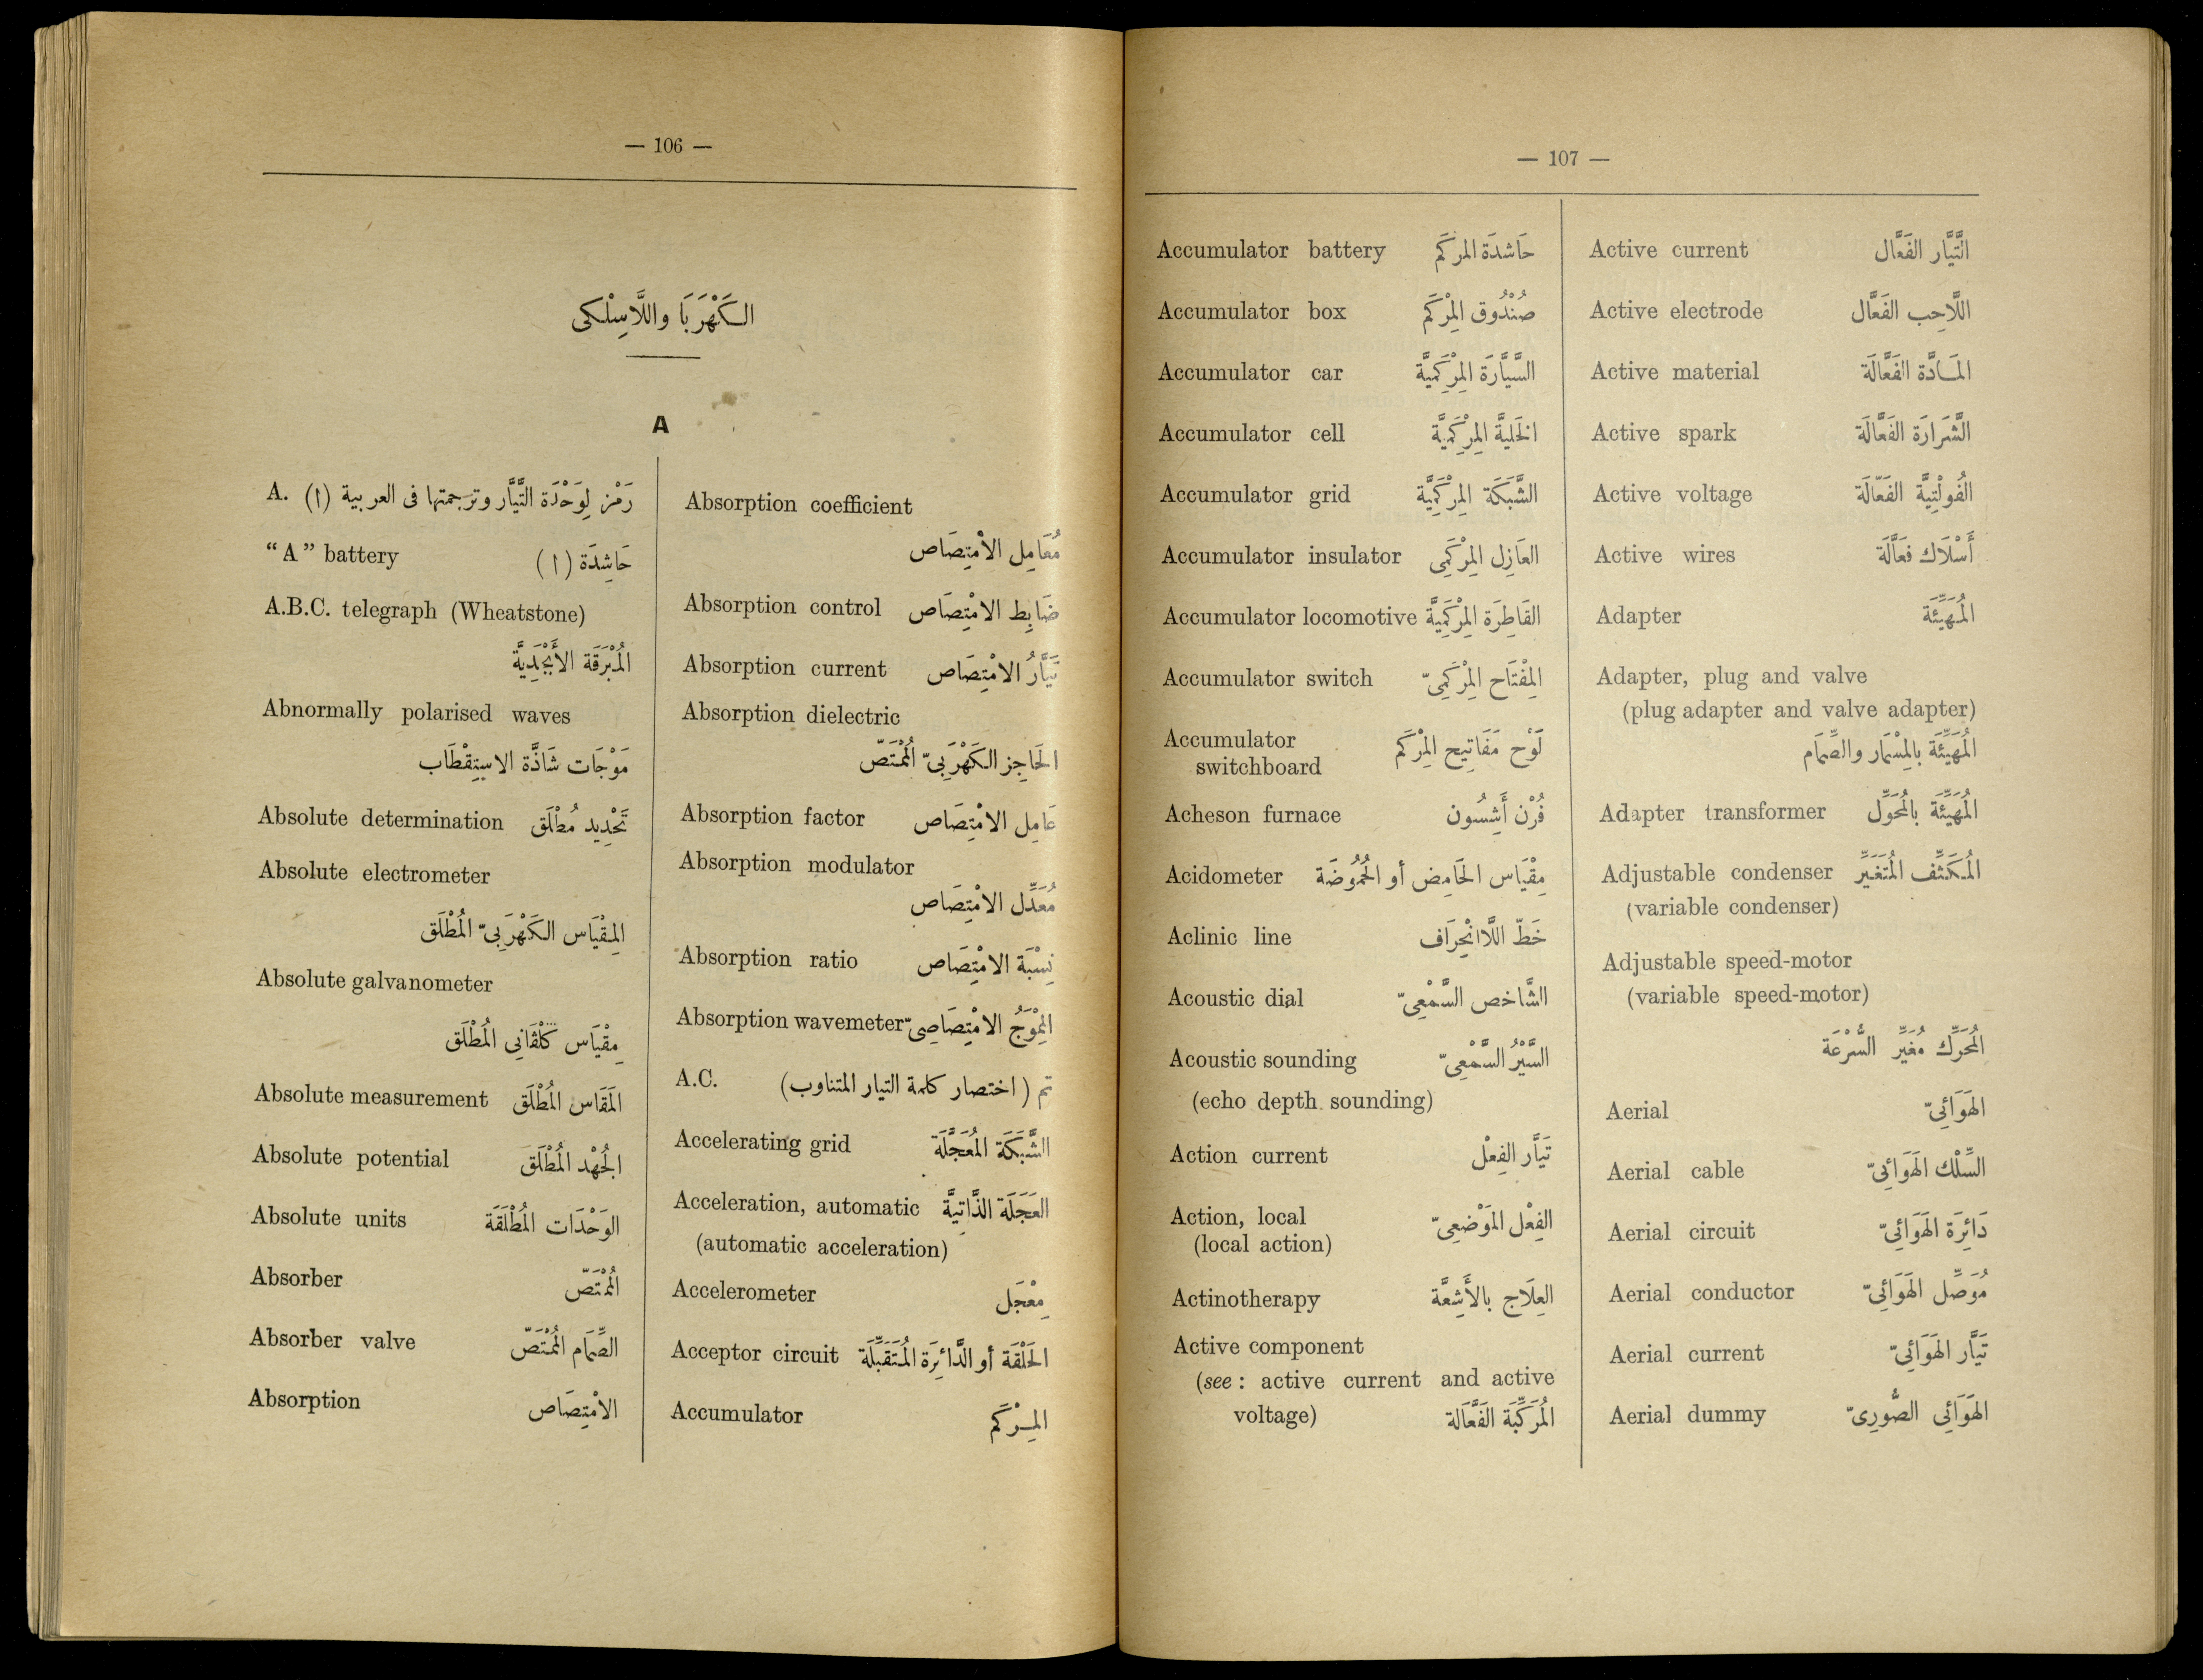 — 106 —
الكَهْرَبَا واللَّاسِلْكى
A
A. رَمْز لِوَحْدَة التَّيَّار وترجمتها فى العربية (ا)
“A” battery حَاشِدَة (ا)
A.B.C. telegraph (Wheatstone)
المُبْرَقَة الأَبْجَدِيَّة
Abnormally polarised waves
مَوْجَات شَاذَّة الاسْتِقْطَاب
Absolute determination تَحْدِيد مُطْلَق
Absolute electrometer
المِقْيَاس الكَهْرَبِىّ المُطْلَق
Absolute galvanometer
مِقْيَاس كَلْڤَانِى المُطْلَق
Absolute measurement المَقَاس المُطْلَق
Absolute potential الجُهْد المُطْلَق
Absolute units الوَحْدَات المُطْلَقَة
Absorber المُمْتَصّ
Absorber valve الصِّمَام المُمْتَصّ
Absorption الامْتِصَاص
Absorption coefficient
مُعَامِل الامْتِصَاص
Absorption control ضَابِط الامْتِصَاص
Absorption current تَيَّارُ الامْتِصَاص
Absorption dielectric
الحَاجِز الكَهْرَبِىّ المُمْتَصّ
Absorption factor عَامِل الامْتِصَاص
Absorption modulator
مُعَدِّل الامْتِصَاص
Absorption ratio نِسْبَة الامْتِصَاص
Absorption wavemeter المِوْجَ الامْتِصَاصِىّ
A.C. تم (اختصار كلمة التيار المتناوب)
Accelerating grid الشَّبَكَة المُعَجِّلَة
Acceleration, automatic العَجَلَة الذَّاتِيَّة
(automatic acceleration)
Accelerometer مِعْجَل
Acceptor circuit الحَلْقَة أو الدَّائِرَة المُتَقَبِّلَة
Accumulator المِرْكَم
— 107 —
Accumulator battery حَاشدَة المركَم
Accumulator box صُنْدُوق المِرْكَم
Accumulator car السَّيَّارَة المِرْكَمِيَّة
Accumulator cell الخَلِيَّة المِرْكَمِيَّة
Accumulator grid الشَّبَكَة المِرْكَمِيَّة
Accumulator insulator العَازِل المِرْكَمِى
Accumulator locomotive القَاطِرَة المِرْكَمِيَّة
Accumulator switch المِفْتَاح المِرْكَمِىّ
Accumulator لَوْح مَفَاتِيح المِرْكَم
switchboard
Acheson furnace فُرْن أَشِسُون
Acidometer مِقْيَاس الحَامِض أو الحُمُوضَة
Aclinic line خَطّ اللَّاانْحِرَاف
Acoustic dial الشَّاخص السَّمْعِىّ
Acoustic sounding السَّبْرُ السَّمْعِىّ
(echo depth sounding)
Action current تَيَّار الفِعْل
Action, local الفِعْل المَوْضعِىّ
(local action)
Actinotherapy العِلَاج بالأَشِعَّة
Active component
(see : active current and active
voltage) المُرَكِّبَة الفَعَّالة
Active current التَّيَّار الفَعَّال
Active electrode اللَّاحِب الفَعَّال
Active material المَادَّة الفَعَّالَة
Active spark الشَّرَارَة الفَعَّالَة
Active voltage الفُولْتِيَّة الفَعَّالَة
Active wires أَسْلَاك فعَّالَة
Adapter المُهَيِّئَة
Adapter, plug and valve
(plug adapter and valve adapter)
المُهَيِّئَة بالمِسْمَار والصِّمَام
Adapter transformer المُهَيِّئَة بالمُحَوِّل
Adjustable condenser المُكَثِّف المُتَغَيِّر
(variable condenser)
Adjustable speed-motor
(variable speed-motor)
المُحَرِّك مُغَيِّر السُّرْعَة
Aerial الهَوَائِىّ
Aerial cable السِّلْك الهَوَائِىّ
Aerial circuit دَائِرَة الهَوَائِىّ
Aerial conductor مُوَصِّل الهَوَائِىّ
Aerial current تَيَّار الهَوَائِىّ
Aerial dummy الهَوَائِى الصُّورِىّ